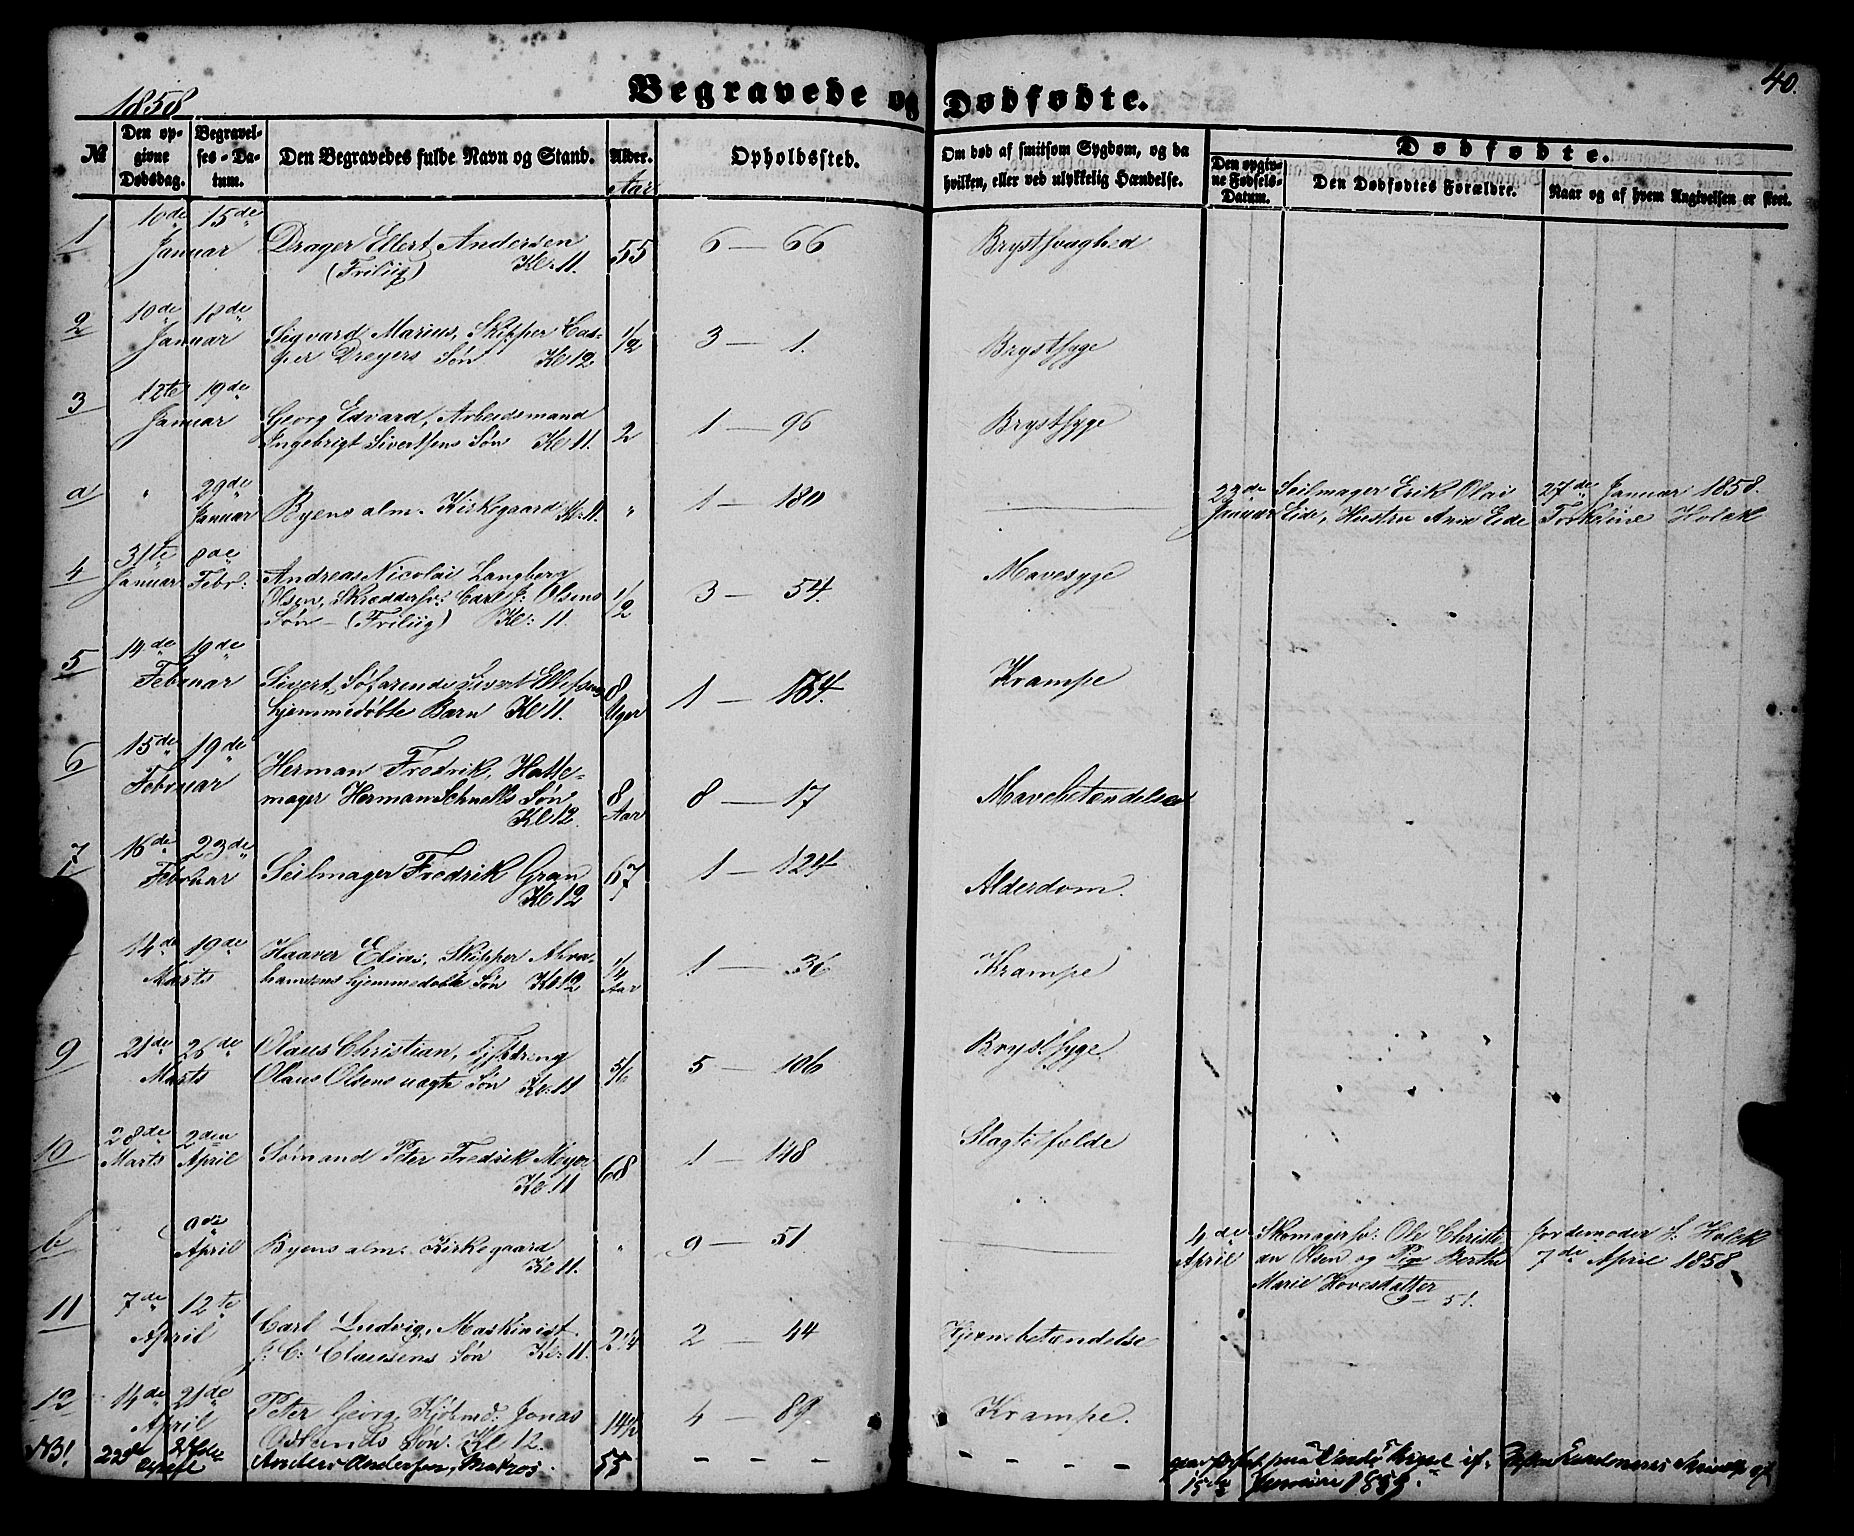 40.
1858
Begravede og Dødfødte.
№
Den opgivne Dødsdag.
Begravelses-Datum.
Den Begravedes fulde Navn og Stand.
Alder.
Aar
Opholdssted.
Om død af smitsom Sygdom, og da hvilken, eller ved ulykkelig Hændelse.
Dødfødte.
Den opgivne Fødsels-Datum.
Den Dødfødtes Forældre.
Naar og af hvem Angivelsen er skeet.
1 10de 15de
Januar Drager Ellert Andersen 55 6 — 66 Brystsvaghed
(Friliig) Kl: 11.
2 10de 18de
Januar Sigvard Marius, Skipper Cas- 1/2 3 — 1. Brystsyge
per Dreyers Søn Kl 12
3 12te 19de
Januar Georg Edvard, Arbeidsmand 2 1 — 96 Brystsyge
Ingebrigt Sivertsens Søn Kl 11.
a " 29de
Januar Byens alm. Kirkegaard Kl: 11. " 1 — 180 23de Seilmager Erik Olai 27de Januar 1858.
Januar Eide, Hustru Ane Eide Holck
4 31te 8de
Januar Febr: Andreas Nicolai Langberg 1/2 3 — 54. Mavesyge
Olsen, Skræddersv: Carl J: Olsens
Søn — (Friliig) Kl: 11.
5 14de 19de
Februar Sivert, Søfarende Sivert Ellefsens 8 Uger 1 — 184. Krampe
hjemmedøbte Barn Kl 11.
6 15de 19de
Februar Herman Fredrik, Hatte- 8 Aar 8 — 17 Mavebetændelse
mager Herman Schnells Søn
Kl 12.
7 16de 23de
Februar Seilmager Fredrik Gran 67 1 — 124 Alderdom.
Kl 12
14de 19de
Marts Haaver Elias, Skipper Abra- 1/4 Aar 1 — 36 Krampe
hamsens hjemmedøbte Søn Kl: 12
9 21de 26de
Marts Olaus Christian, 5/6 5 — 106 Brystsyge
Olaus Olsens uægte Søn Kl: 11
10 28de 2den
Marts April Sømand Peter Fredrik Meyer 68 1 — 148 Slagtilfælde
Kl. 11
b 9de
April Byens alm. Kirkegaard " 9 — 51 4de Skomagersv: Ole Christi- Jordemoder S. Holck
Kl 11. April an Olsen og Pige Berthe 7de April 1858
Marie Hovestatter
9 — 51.
11 7de 12te
April Carl Ludvig, Maskinist 2 1/4 2 — 44 Hjernebetændelse
J: C: Claussens Søn Kl: 11.
12 14de 21de
April Peter Georg, Kjøbmd: Jonas 14 1/2 4 — 89 Krampe.
Søn. Kl 12.
NB! 22de Anders Andersen, Matros 55 — — — — — — —
15de 1859.